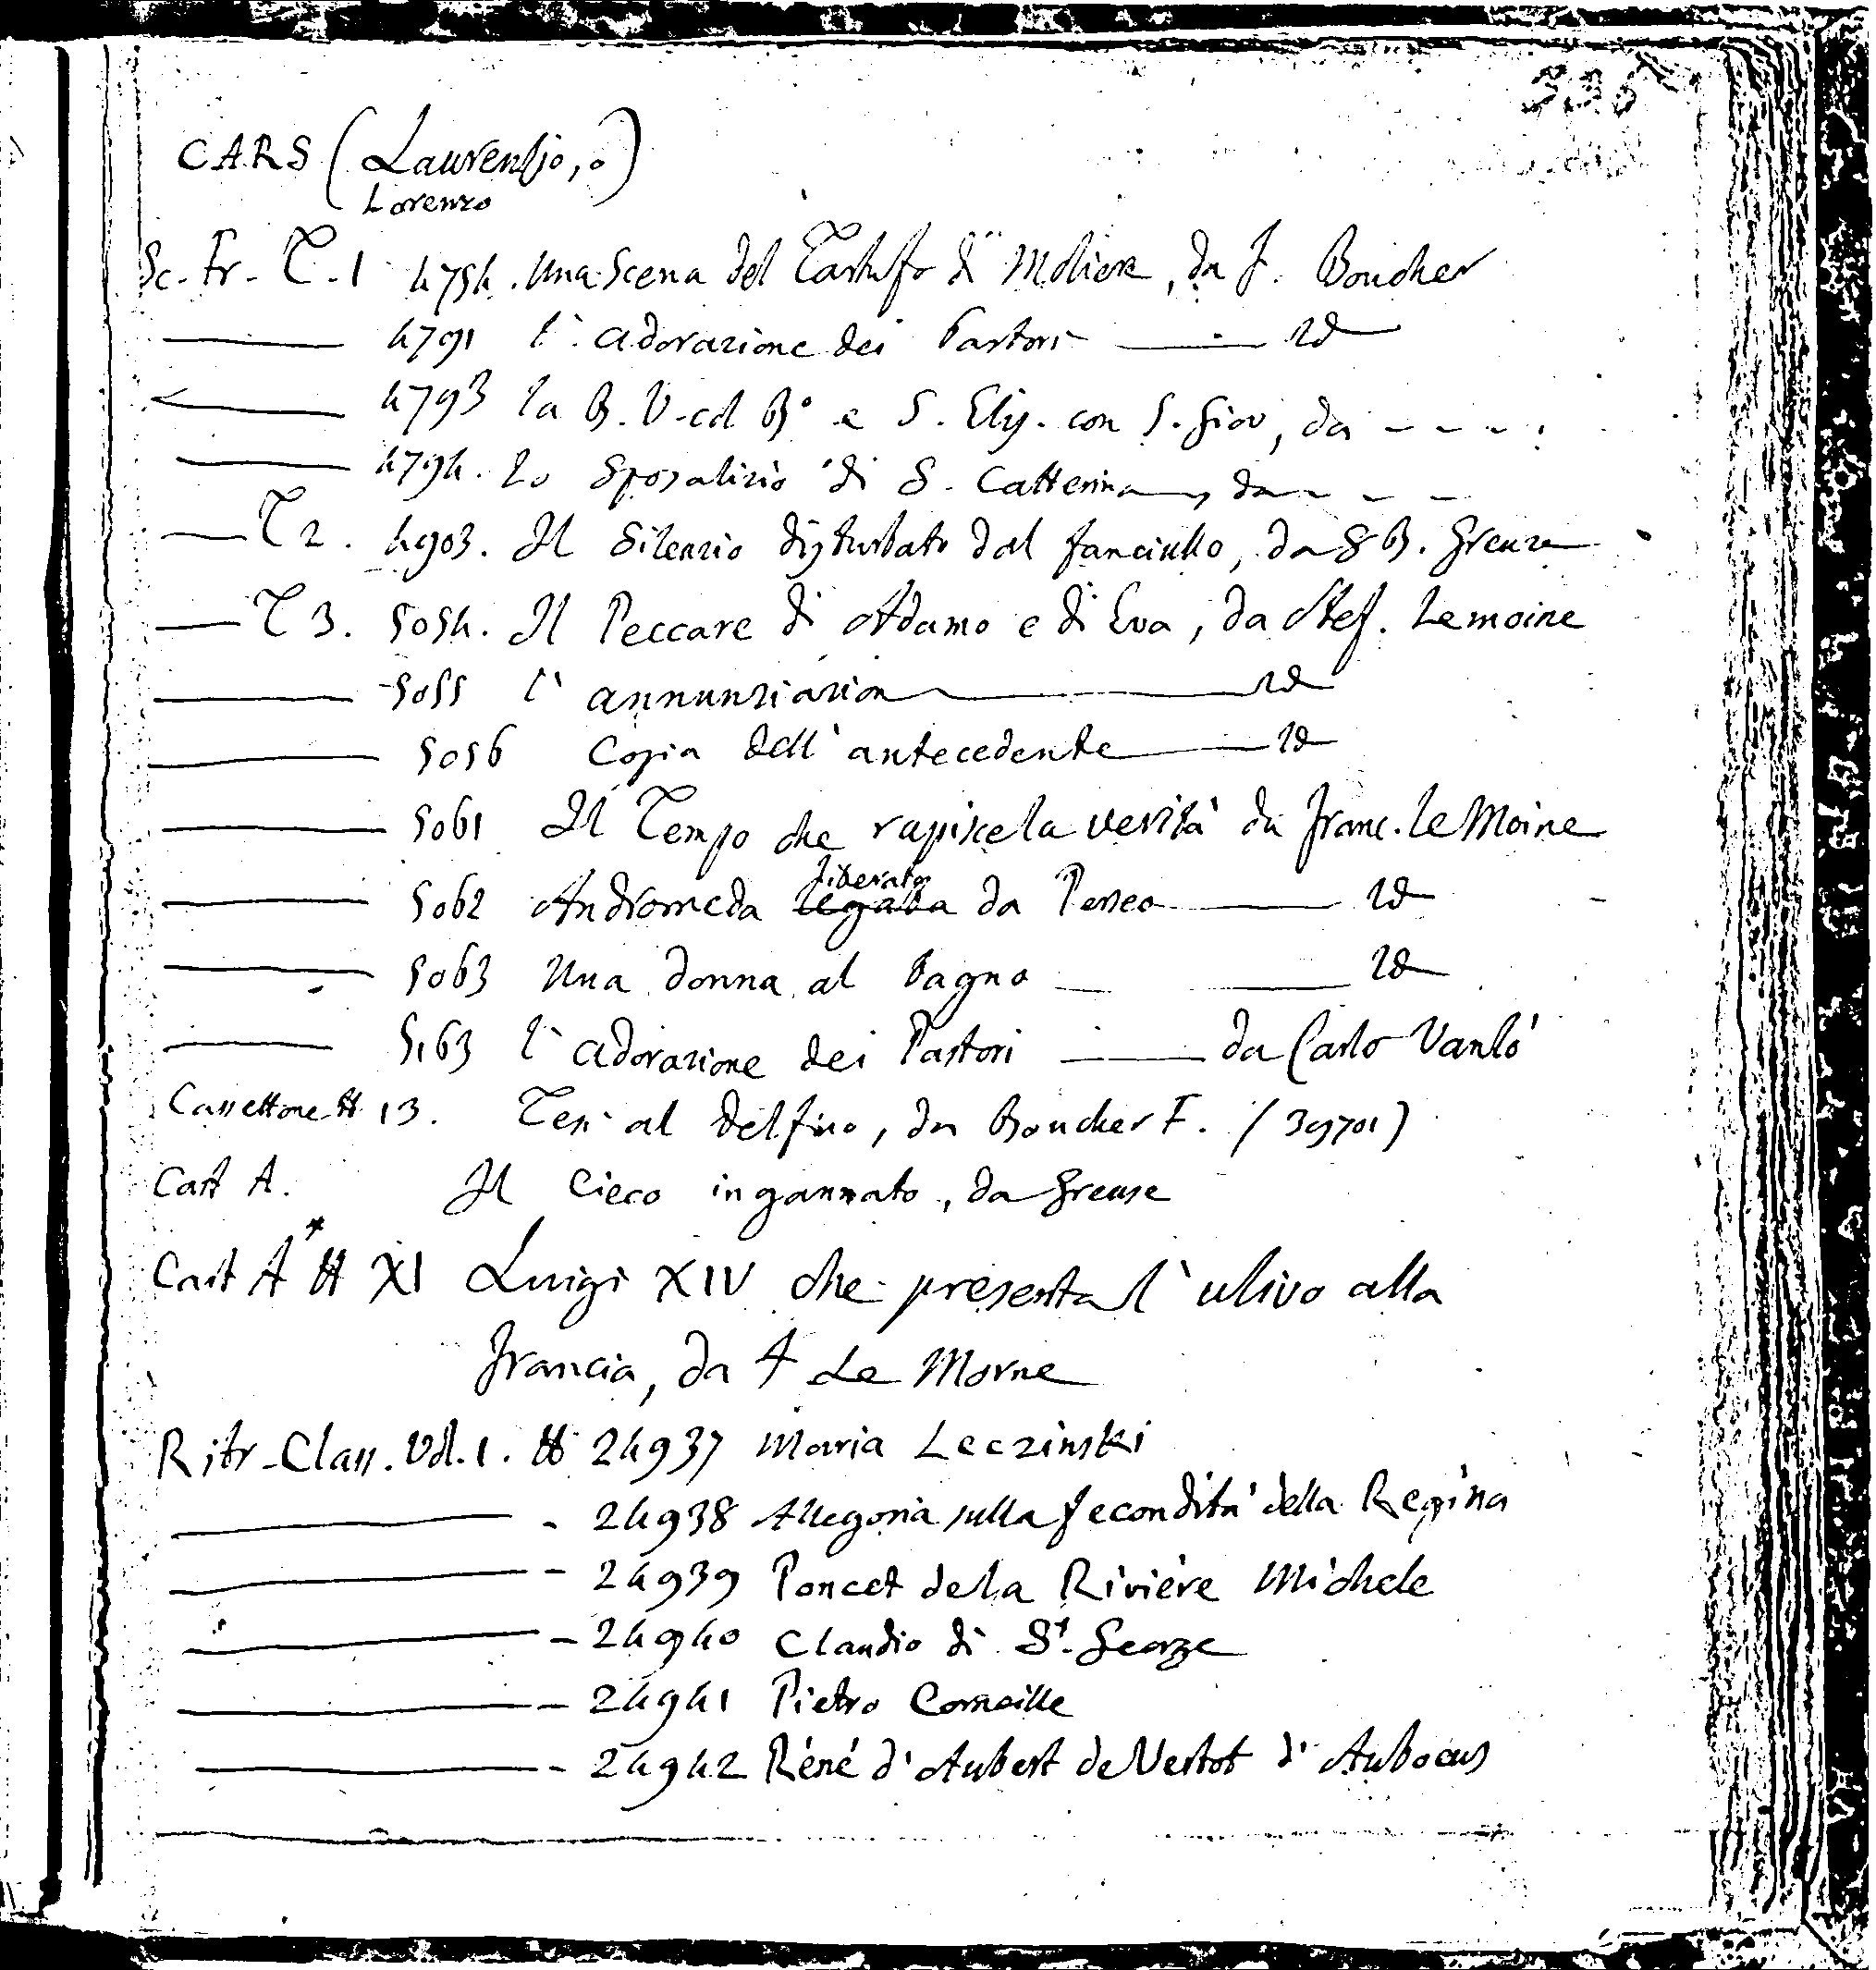 CARS (Laurentio, o)
Lorenzo
Sc. Fr. T. 1 4754. Una Scena del Tartufo di Moliere, da F. Boucher
4791 l'adorazione dei Pastori id
4793 la B. V. col B° e S. Elis. con S. Giov, da - - - -
4794. Lo Sposalizio di S. Catterina, da - - -
T 2. 4903. Il Silenzio disturbato dal fanciullo, da B. Greuze
T 3. 5054. Il Peccare di Adamo e di Eva, da Stef. Lemoine
5055 l'annunziazion id
5056 Copia dell'antecedente id
5061 Il Tempo che rapisce la verità da Franc. le Moine
liberata
5062 Andromeda legata da Perseo id
5063 Una donna al bagno id
5163 l'adorazione dei Pastori da Carlo Vanló
Cassettone # 13. Tesi al Delfino, da Boucher F. (39701)
Cart A. Il Cieco ingannato, da Greuse
Cart A* # XI Luigi XIV che presenta l'ulivo alla
Francia, da F Le Morne
Ritr. Class. Vol. 1. # 24937 Maria Leczinski
24938 Allegoria sulla fecondità della Regina
24939 Poncet de la Rivière Michele
24940 Claudio di St. George
24941 Pietro Corneille
24942 Réné d'Aubert de Vertot d'Auboeus